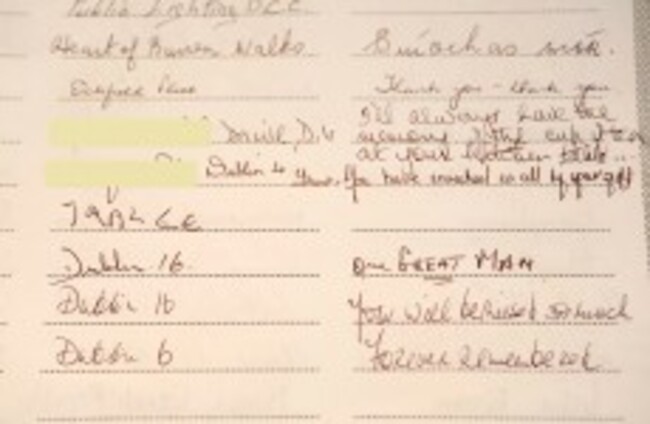 Public Lighting D.C.C.
Heart of Burren Walks
Buíochas mór.
Thank you - thank you
I'll always have the
memory of the cup of tea
at your kitchen table..
D.6
Dublin 4
You have touched us all
FRANCE
Dublin 16.
One GREAT MAN
Dublin 16
You will be missed so much
Dublin 6
Forever remembered.